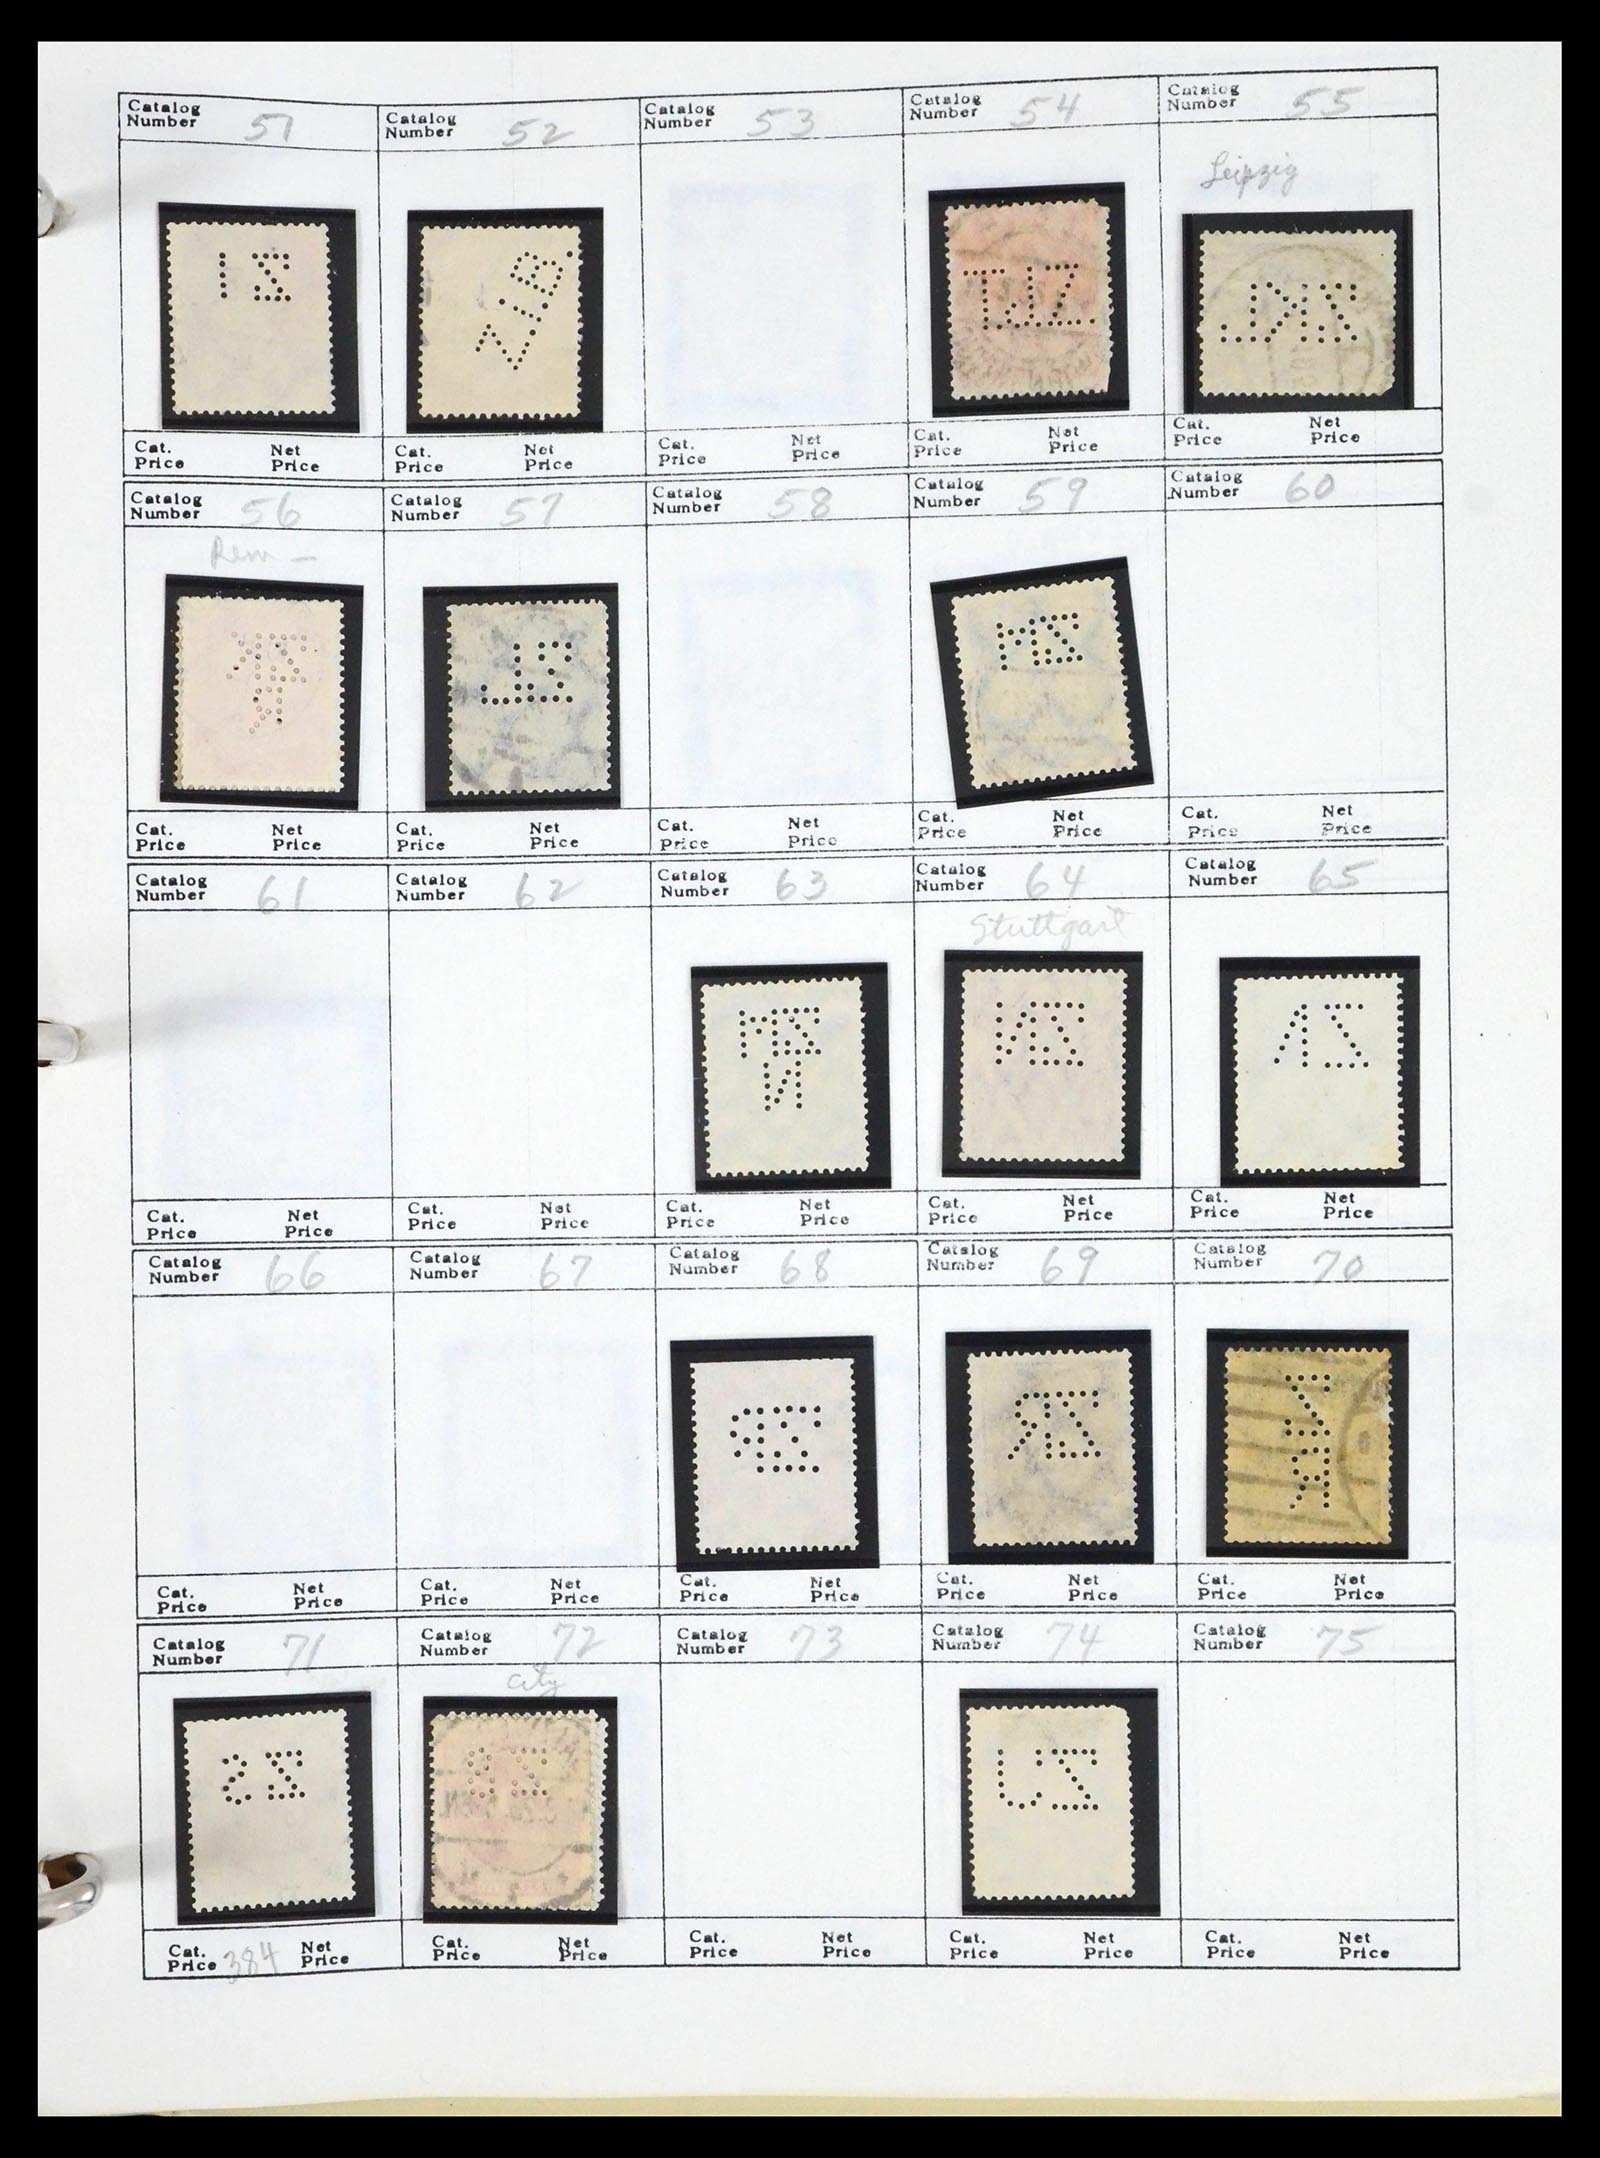 Catalog Number 51 Catalog Number 52 Catalog Number 53 Catalog Number 54 Catalog Number 55
Leipzig
Cat. Price Net Price Cat. Price Net Price Cat. Price Net Price Cat. Price Net Price Cat. Price Net Price
Catalog Number 56 Catalog Number 57 Catalog Number 58 Catalog Number 59 Catalog Number 60
Rem —
Cat. Price Net Price Cat. Price Net Price Cat. Price Net Price Cat. Price Net Price Cat. Price Net Price
Catalog Number 61 Catalog Number 62 Catalog Number 63 Catalog Number 64 Catalog Number 65
Stuttgart
Cat. Price Net Price Cat. Price Net Price Cat. Price Net Price Cat. Price Net Price Cat. Price Net Price
Catalog Number 66 Catalog Number 67 Catalog Number 68 Catalog Number 69 Catalog Number 70
Cat. Price Net Price Cat. Price Net Price Cat. Price Net Price Cat. Price Net Price Cat. Price Net Price
Catalog Number 71 Catalog Number 72 Catalog Number 73 Catalog Number 74 Catalog Number 75
City
Cat. Price 384 Net Price Cat. Price Net Price Cat. Price Net Price Cat. Price Net Price Cat. Price Net Price